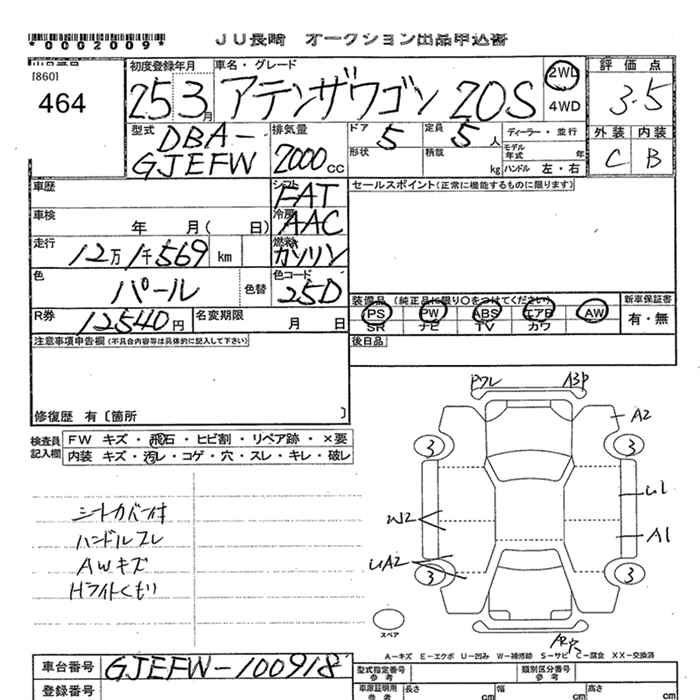 *0002009*
JU長崎 オークション出品申込書
[860]
464
初度登録年月
25 3月
車名・グレード
アテンザワゴン 20S
2WD
4WD
評価点
3.5
外装 内装
C B
型式
DBA-
GJEFW
排気量
2000cc
ドア 5
形状
定員 5人
積載 kg
ディーラー・並行
モデル年式 年
ハンドル 左・右
車歴
シフト
FAT
セールスポイント(正常に機能するものに限ります)
車検 年 月( 日)
冷房
AAC
走行
12万1千569 km
燃料
ガソリン
色
パール
色替
色コード
25D
装備品 (純正品に限り○をつけてください)
新車保証書
PS PW ABS エアB AW
有・無
SR ナビ TV カワ
R券
12540円
名変期限 月 日
注意事項申告欄(不具合内容等は具体的に記入して下さい)
後日品
修復歴 有〔箇所 〕
検査員
記入欄
FW キズ・飛石・ヒビ割・リペア跡・×要
内装 キズ・汚レ・コゲ・穴・スレ・キレ・破レ
シートカバー付
ハンドルスレ
AWキズ
Hライトくもり
Pフレ A3P
A2
3 3
U1
W2
A1
UA2
3 3
スペア
A-キズ E-エクボ U-凹み W-補修跡 S-サビ C-腐食 XX-交換済
車台番号
GJEFW-100918
登録番号
型式指定番号
参考
類別区分番号
参考
車庫証明用
参考
長さ cm 幅 cm 高さ cm